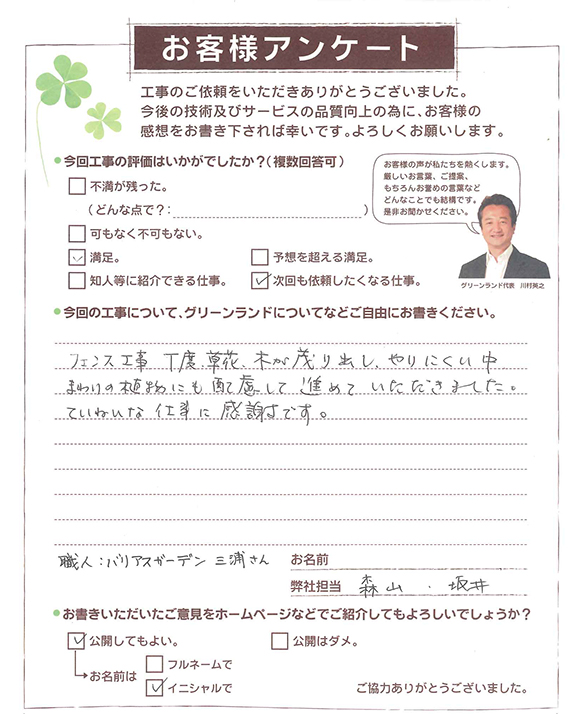 お客様アンケート
工事のご依頼をいただきありがとうございました。
今後の技術及びサービスの品質向上の為に、お客様の
感想をお書き下されば幸いです。よろしくお願いします。
今回工事の評価はいかがでしたか？（複数回答可）
不満が残った。
（どんな点で？：　）
可もなく不可もない。
満足。
予想を超える満足。
知人等に紹介できる仕事。
次回も依頼したくなる仕事。
お客様の声が私たちを熱くします。
厳しいお言葉、ご提案、
もちろんお誉めの言葉など
どんなことでも結構です。
是非お聞かせください。
グリーンランド代表　川村英之
今回の工事について、グリーンランドについてなどご自由にお書きください。
フェンス工事 丁度、草花、木が茂り出し、やりにくい中
まわりの植物にも配慮して進めていただきました。
ていねいな仕事に感謝です。
職人：バリアスガーデン 三浦さん
お名前
弊社担当　森山 . 坂井
お書きいただいたご意見をホームページなどでご紹介してもよろしいでしょうか？
公開してもよい。
公開はダメ。
お名前は
フルネームで
イニシャルで
ご協力ありがとうございました。